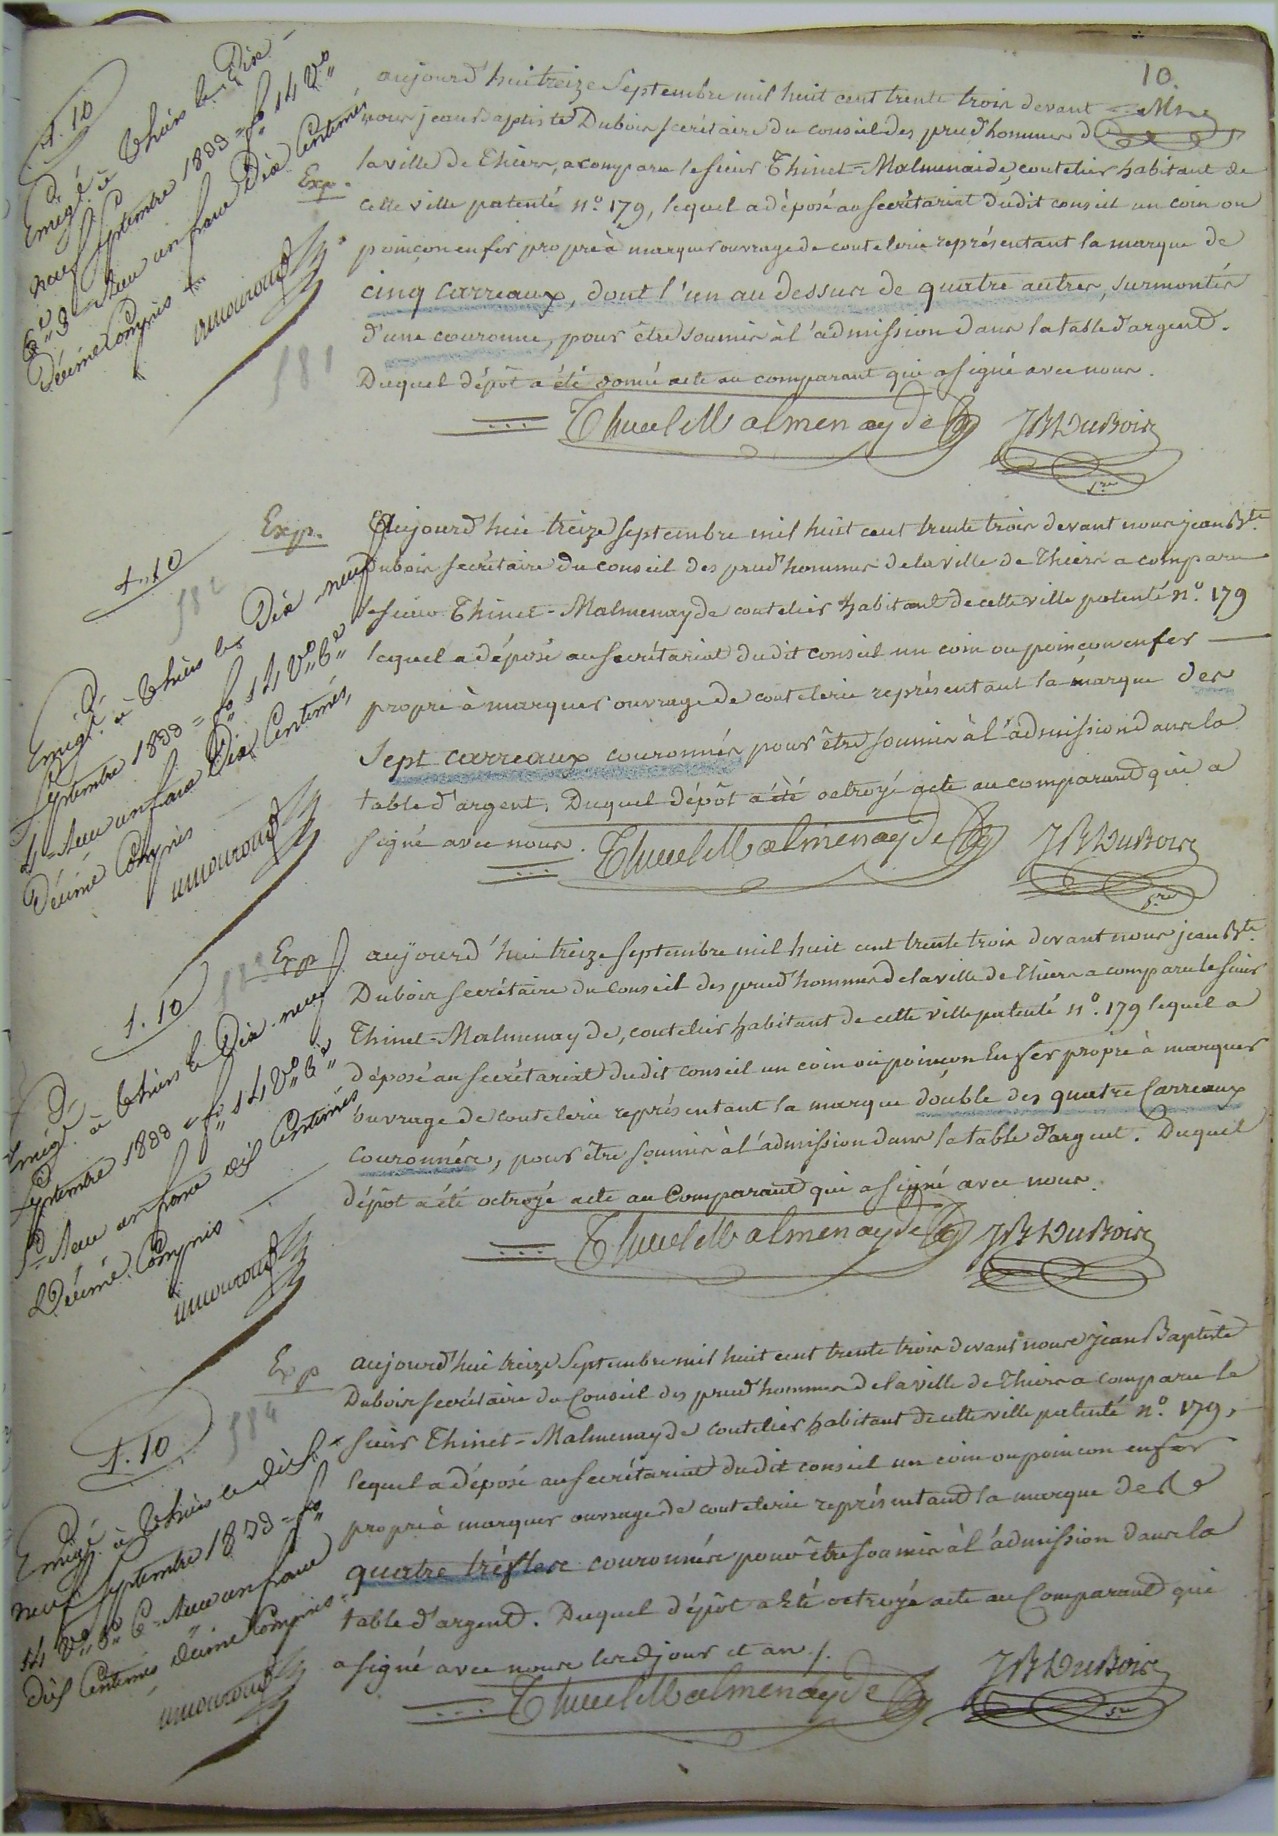 10.
aujourd'hui treize Septembre mil huit cent trente trois devant
nous jean Baptiste Dubois secrétaire du conseil des prud'hommes d
la ville de Thiers, a comparu le sieur Thinet-Malmenaide, coutelier habitant de
cette ville patenté n.o 179, lequel a déposé au secrétariat dudit conseil un coin ou
poinçon en fer propre à marquer ouvrage de coutelerie représentant la marque de
cinq carreaux, dont l'un au dessus de quatre autres, surmontés
d'une couronne, pour être soumis à l'admission dans la table d'argent.
Duquel dépôt a été donné acte au comparant qui a signé avec nous.
Thinet Malmenayde JB Dubois
s.re
1.10
Enrégé. à Thiers le Dix
neuf Septembre 1833 = f.o 14 V.o
C.e 3 = Reçu un franc Dix Centimes
Décime Compris
Exp.
181
Exp.
Aujourd'hui treize septembre mil huit cent trente trois devant nous jean B.te
Dubois secrétaire du conseil des prud'hommes de la ville de Thiers a comparu
le sieur Thinet-Malmenayde coutelier habitant de cette ville patenté n.o 179
lequel a déposé au secrétariat dudit conseil un coin ou poinçon en fer
propre à marquer ouvrage de coutelerie représentant la marque des
Sept carreaux couronnés pour être soumis à l'admission dans la
table d'argent. Duquel dépôt a été octroyé acte au comparant qui a
signé avec nous. Thinet Malmenayde JB Dubois
s.re
1.10
182
Enrégé. à Thiers le Dix neuf
Septembre 1833 = f.o 14 V.o C.e
4 = Reçu un franc Dix Centimes,
Décime Compris
Exp
aujourd'hui treize septembre mil huit cent trente trois devant nous jean B.te
Dubois secrétaire du Conseil des prud'hommes de la ville de Thiers a comparu le sieur
Thinet-Malmenayde, coutelier habitant de cette ville patenté n.o 179 lequel a
déposé au secrétariat dudit conseil un coin ou poinçon En fer propre à marquer
ouvrage de coutelerie représentant la marque double des quatre Carreaux
Couronnés, pour être soumis à l'admission dans la table d'argent. Duquel
dépôt a été octroyé acte au Comparant qui a signé avec nous.
Thinet Malmenayde JB Dubois
1.10
Enrégé. à Thiers le Dix neuf
Septembre 1833 = f.o 14 V.o C.e
5 = Reçu un franc dix Centimes
Décime Compris
Exp
aujourd'hui treize Septembre mil huit cent trente trois devant nous jean Baptiste
Dubois secrétaire du Conseil des prud'hommes de la ville de Thiers a comparu le
sieur Thinet-Malmenayde coutelier habitant de cette ville patenté n.o 179,
lequel a déposé au secrétariat dudit conseil un coin ou poinçon en fer
propre à marquer ouvrage de coutelerie représentant la marque de
quatre tréfles couronnés pour être soumis à l'admission dans la
table d'argent. Duquel dépôt a été octroyé acte au Comparant qui
a signé avec nous les d jour et an /.
Thinet Malmenayde JB Dubois
s.re
1.10
184
Enrégé à Thiers le dix
neuf septembre 1833 = f.o
14 V.o C.e 6 = Reçu un franc
dix Centimes décime Compris